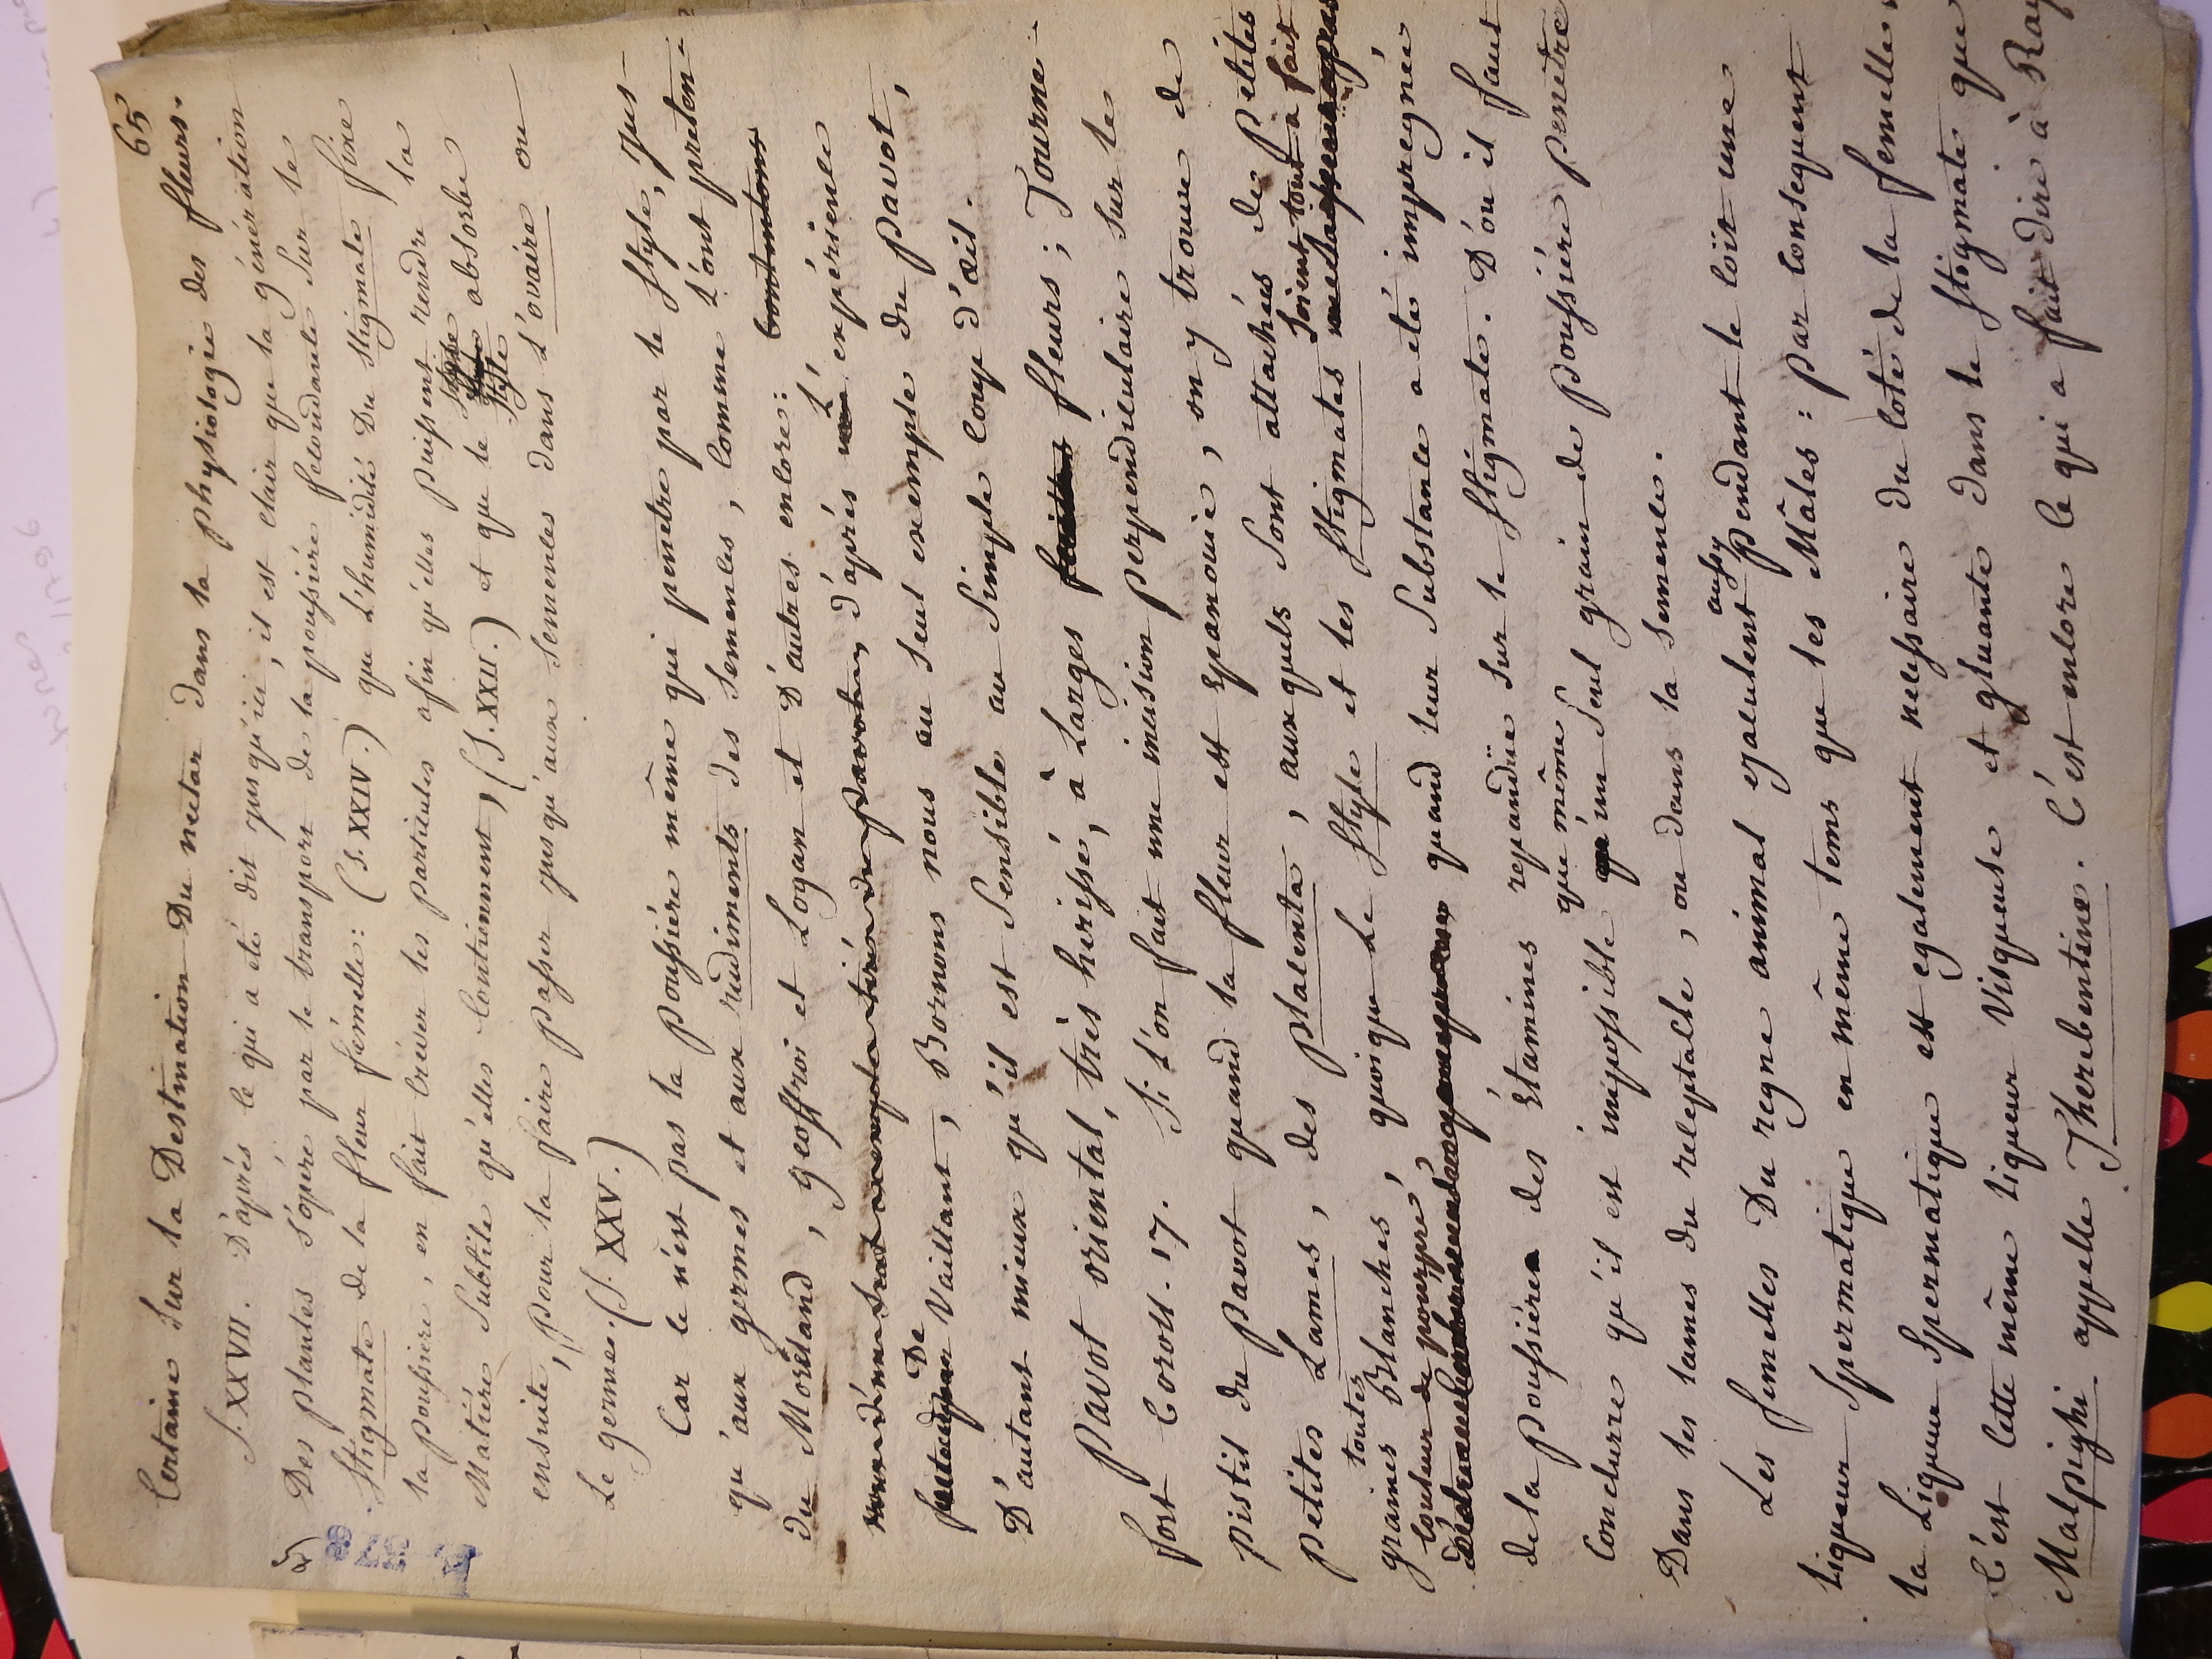 65
Certaine Sur la Destination Du nectar dans la physiologie des fleurs.
§. XXVII. D'aprés ce qui a eté dit jusqu'ici, il est clair que la génération
Des plantes s'opére par le transport de la poussiére fécondante Sur le
Stigmate de la fleur fémelle: (§. XXIV.) que l'humidité Du Stigmate fixe
la poussiere, en fait créver les particules afin qu'elles puissent rendre la
Matiére Subtile qu'elles Contiennent, (§. XXII.) et que le Style absorbe
ensuite, pour la faire passer jusqu'aux Semences dans l'ovaire ou
Le germe. (§. XXV.)
Car ce n'est pas la poussiére même qui penetre par le Style, jus-
qu'aux germes et aux rudiments des Semences, Comme l'ont preten-
du Moreland, geoffroi et Logan et D'autres encore: Contentons
d'aprés L'expérience
De Vaillant, Bornons nous au seul exemple du Pavot,
D'autant mieux qu'il est Sensible au Simple Coup d'œil.
Pavot oriental, très herissé, à Larges fleurs; Tourne-
fort Coroll. 17. Si l'on fait une incision perpendiculaire Sur le
pistil du Pavot quand la fleur est Epanouie, on y trouve de
petites Lames, des placenta, aux quels Sont attachées de Petites
graines toutes Blanches, quoique Le Style et les Stigmates Soient tout à fait
Couleur de pourpre, quand leur Substance a eté impregnée
de la poussiére des Étamines repandüe Sur le Stigmate. D'ou il faut
Conclurre qu'il est impossible que même qu'un Seul grain de poussiére penetre
Dans les lames du receptacle, ou dans la Semence.
Les femelles Du regne animal ejaculent aussy Pendant le Coït une
Liqueur Spermatique en même tems que les Mâles: par Consequent
la Liqueur Spermatique est egalement necessaire du Coté de la femelle.
C'est Cette même liqueur Visqueuse et gluante dans le Stigmate que
Malpighi appelle Therebentine. C'est encore ce qui a fait dire à Ray